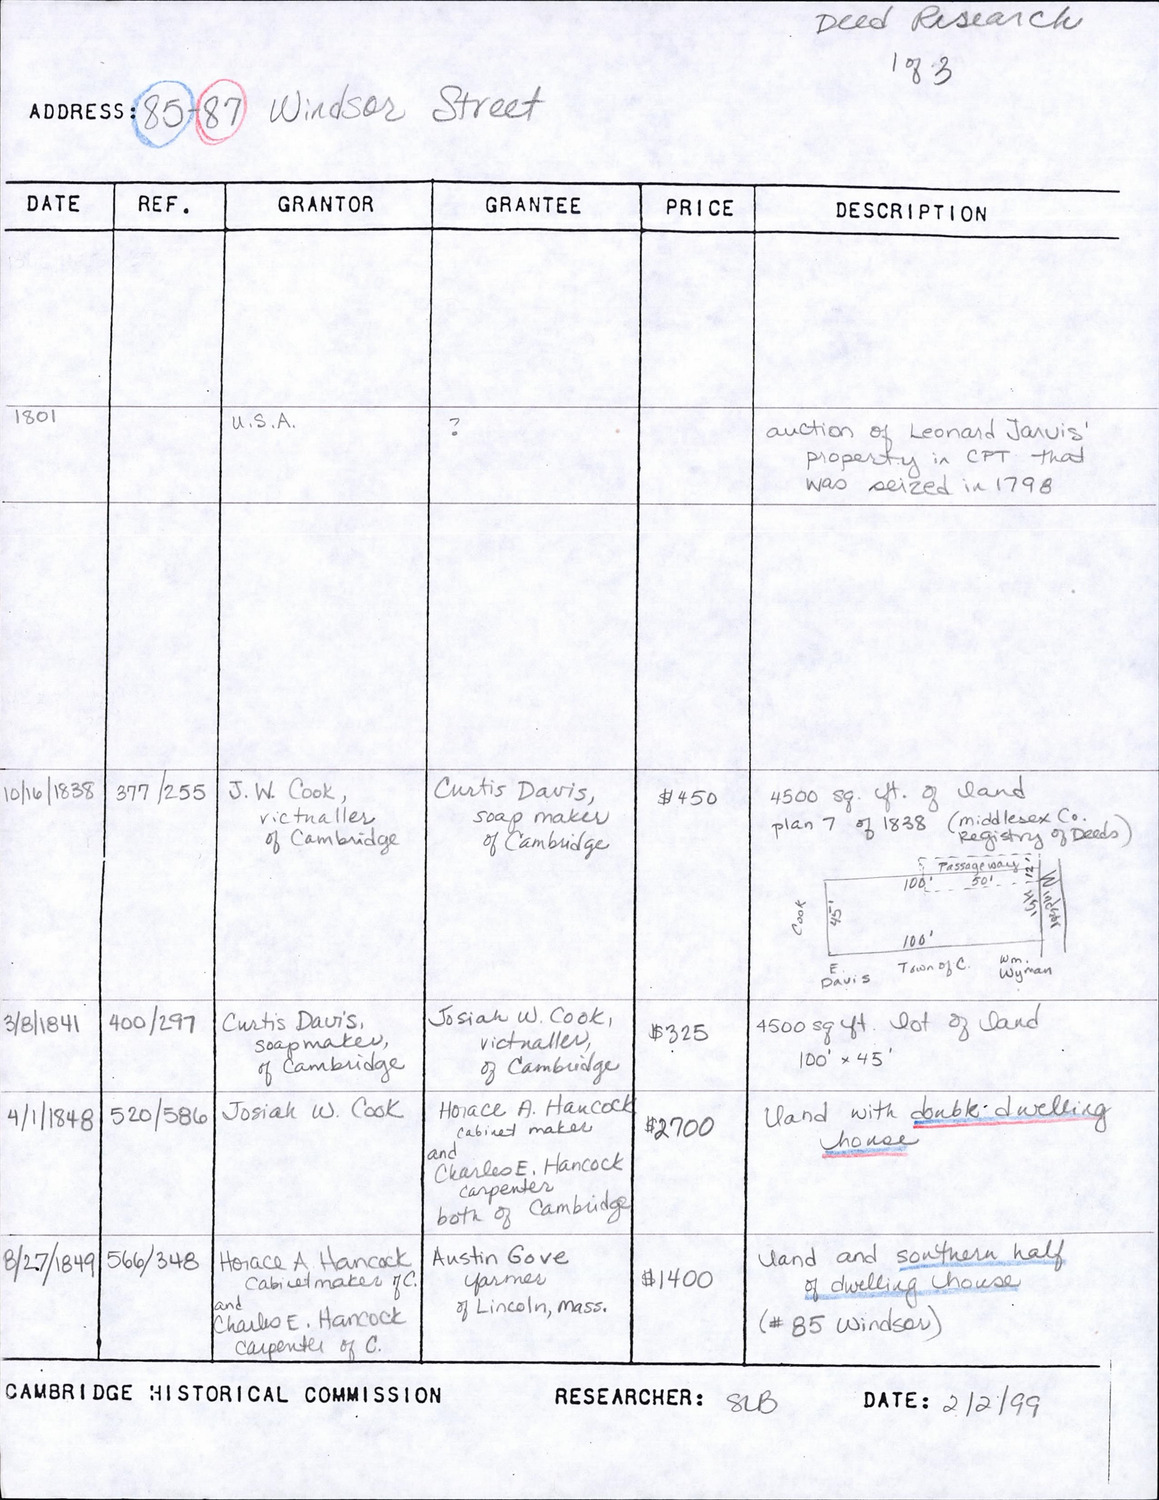 Deed Research
1 of 3
ADDRESS: 85-87 Windsor Street
DATE REF. GRANTOR GRANTEE PRICE DESCRIPTION
1801 U.S.A. ? auction of Leonard Jarvis'
property in CPT that
was seized in 1798
10/16/1838 377/255 J.W. Cook, Curtis Davis, $450 4500 sq. ft. of land
victualler soap maker plan 7 of 1838 (Middlesex Co.
of Cambridge of Cambridge Registry of Deeds)
Passageway 12'
100' 50'
Cook 45' Windsor
100'
E. Davis Town of C. Wm. Wyman
3/8/1841 400/297 Curtis Davis, Josiah W. Cook, $325 4500 sq ft. lot of land
soapmaker, victualler, 100' x 45'
of Cambridge of Cambridge
4/1/1848 520/586 Josiah W. Cook Horace A. Hancock $2700 land with double-dwelling
cabinet maker house
and
Charles E. Hancock
carpenter
both of Cambridge
8/27/1849 566/348 Horace A. Hancock Austin Gove $1400 land and southern half
Cabinetmaker of C. farmer of dwelling house
and of Lincoln, Mass. (# 85 Windsor)
Charles E. Hancock
carpenter of C.
CAMBRIDGE HISTORICAL COMMISSION RESEARCHER: SLB DATE: 2/2/99